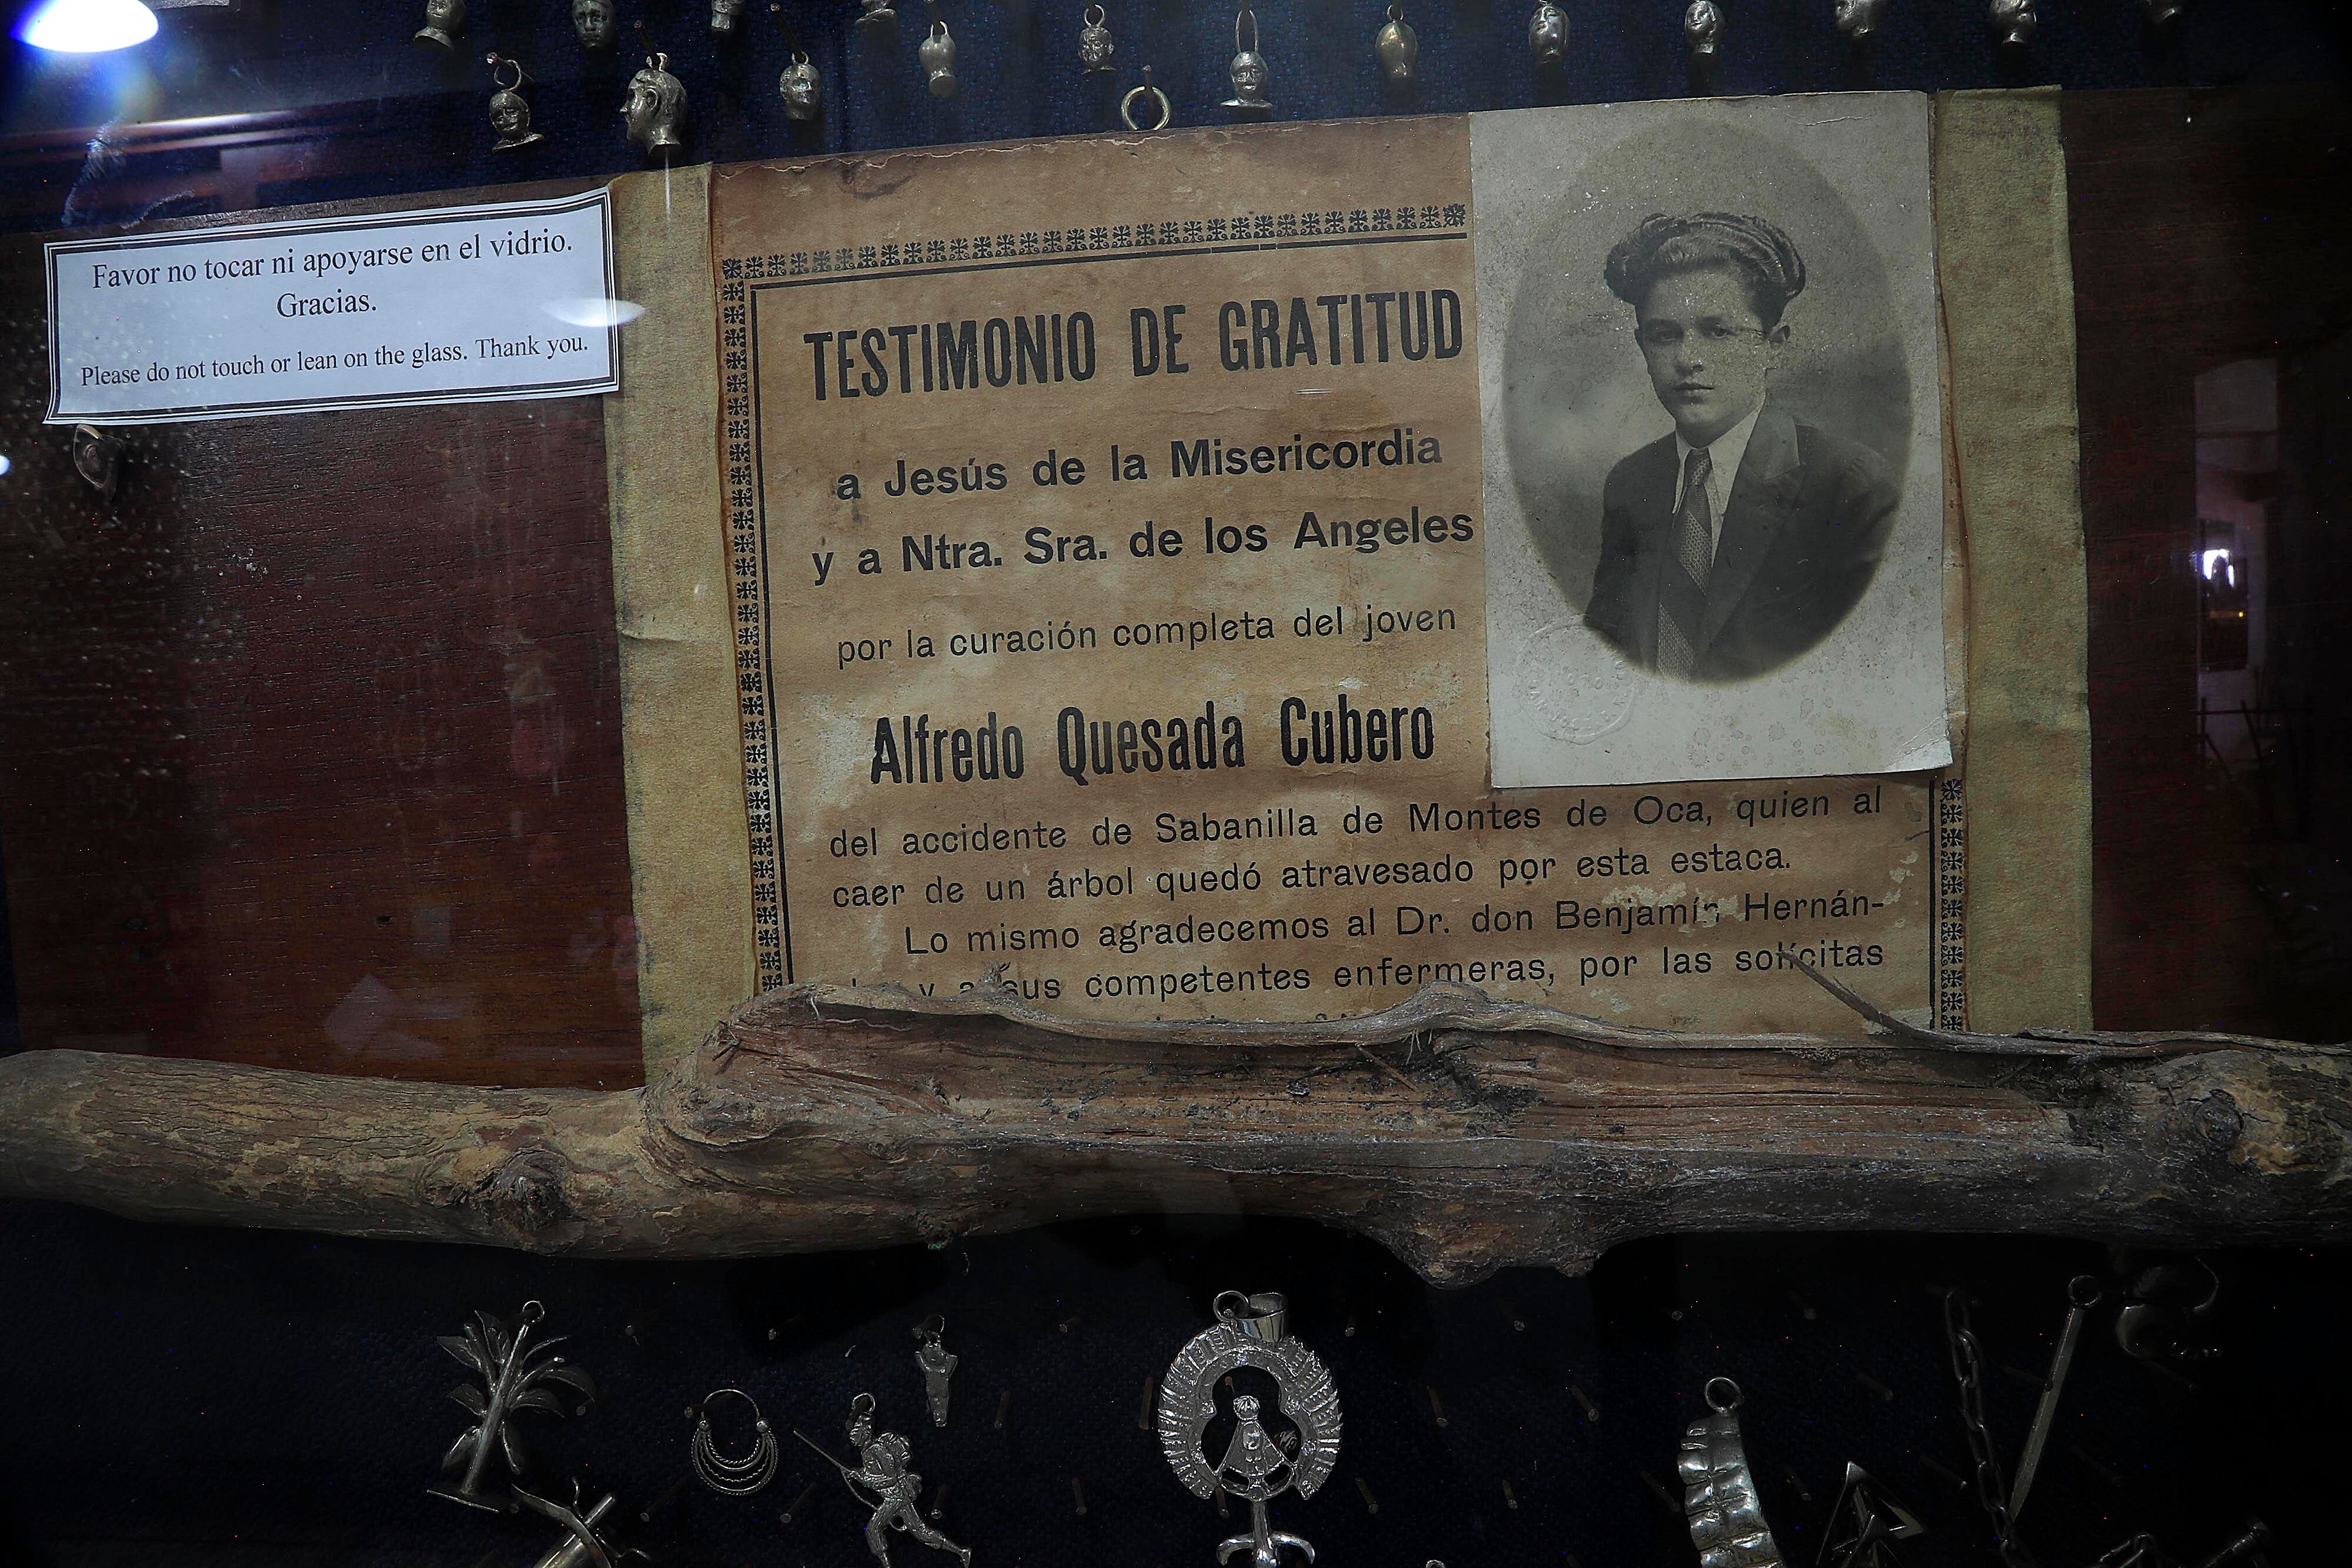 Favor no tocar ni apoyarse en el vidrio.
Gracias.
Please do not touch or lean on the glass. Thank you.
TESTIMONIO DE GRATITUD
a Jesús de la Misericordia
y a Ntra. Sra. de los Angeles
por la curación completa del joven
Alfredo Quesada Cubero
del accidente de Sabanilla de Montes de Oca, quien al
caer de un árbol quedó atravesado por esta estaca.
Lo mismo agradecemos al Dr. don Benjamín Hernán-
y a sus competentes enfermeras, por las solícitas